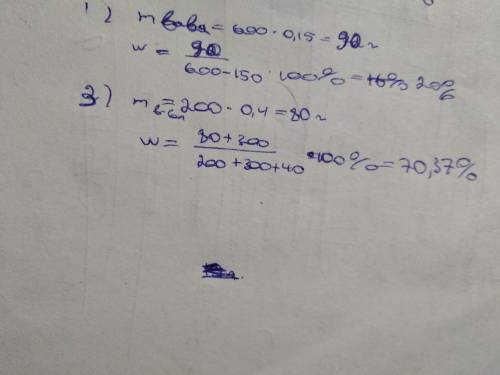 1) m вова = 600 · 0,15 = 90 г
w = 90 / 600-150 · 100% = 20%
3) m в-ва = 200 · 0,4 = 80 г
w = 80+300 / 200+300+40 · 100% = 70,37%